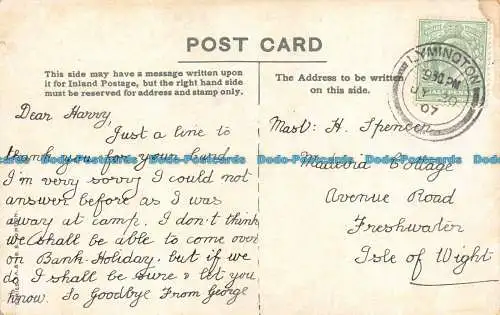 POST CARD
This side may have a message written upon
it for Inland Postage, but the right hand side
must be reserved for address and stamp only.
The Address to be written
on this side.
LYMINGTON
07
HALF PENNY
Dear Harry,
Just a line to
thank you for your
I'm very sorry I could not
answer before as I was
away at camp. I don't think
we shall be able to come over
on Bank-Holiday, but if we
do I shall be sure & let you
know. So Goodbye From George
Mast: H. Spencer
Cottage
Avenue Road
Freshwater
Isle of Wight
Dodo-Postcards